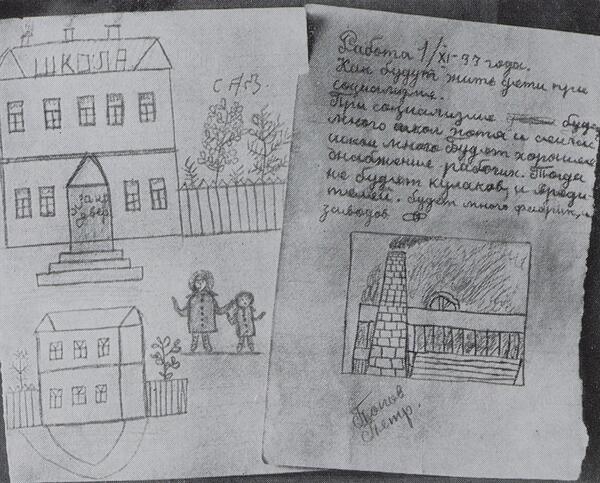 ШКОЛА
САД.
Работа 1/XI-37 года.
Как будут жить дети при
социализме.
При социализме буде
много школ хотя и сейчас
школ много будет хорошее
снабжение рабочих. Тогда
не будет кулаков, и вреди-
телей. будет много фабрик, и
заводов
Попов
Петр.